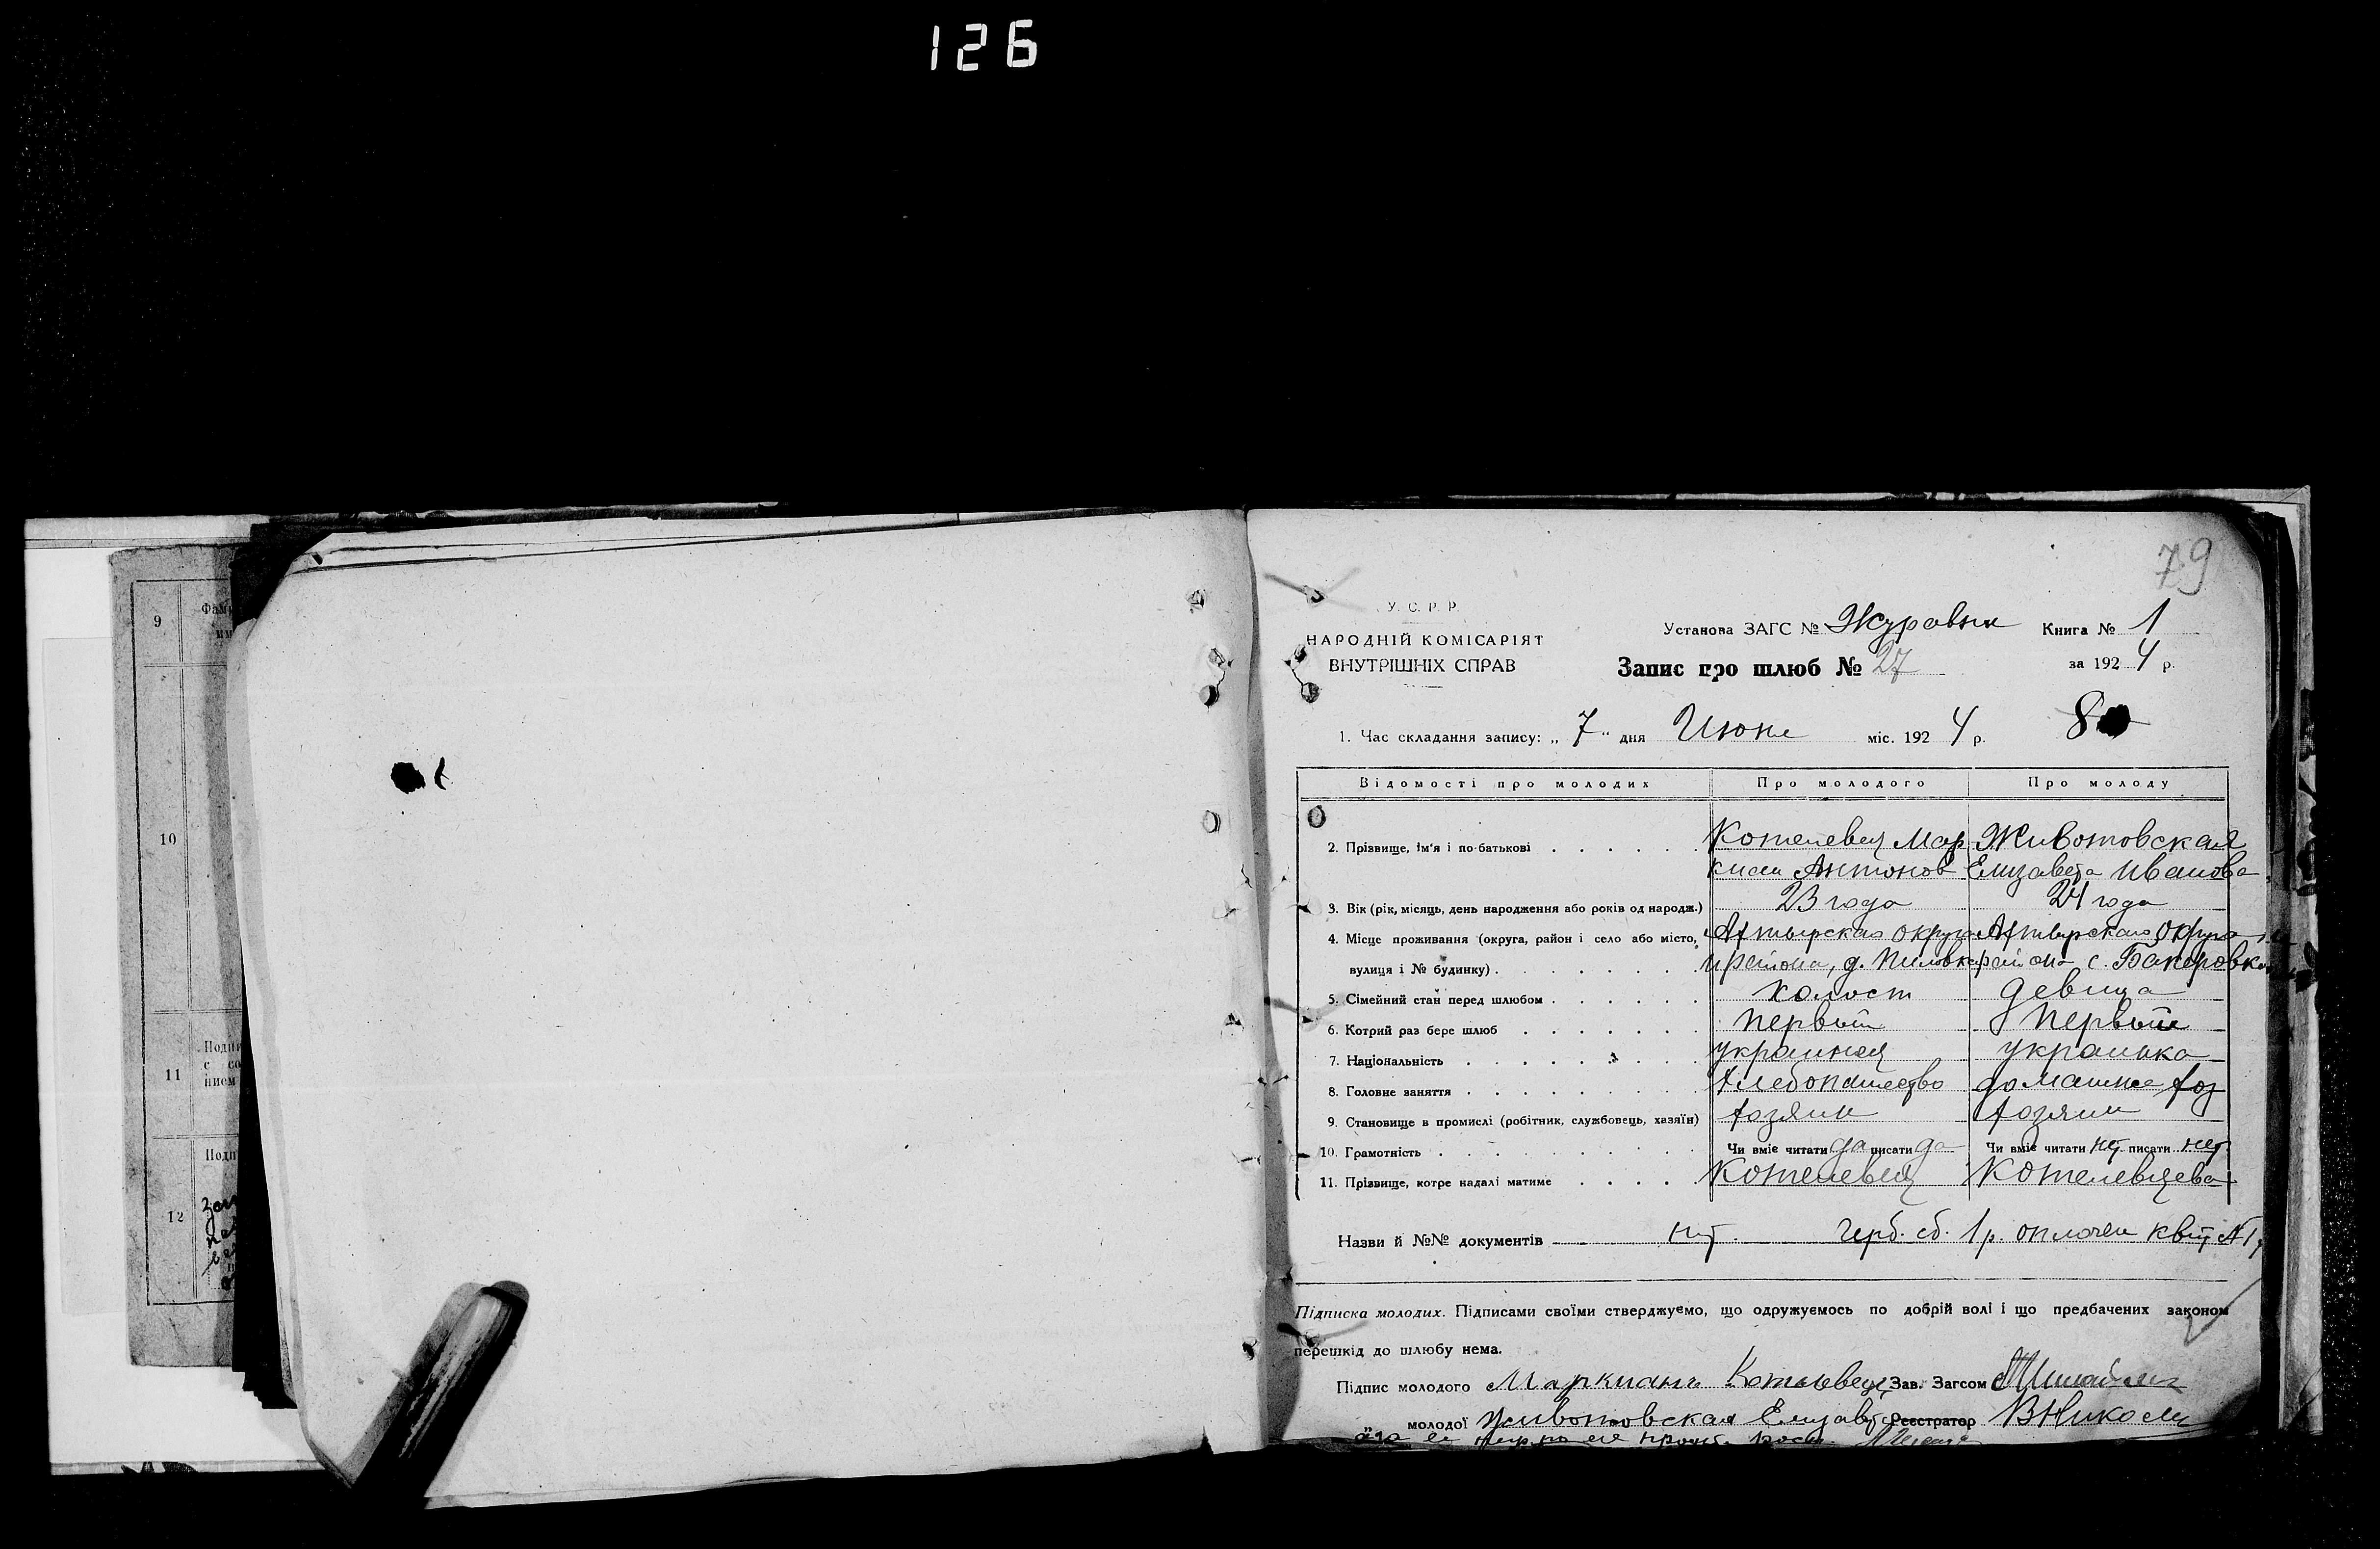 126
79
9
10
11
12
У. С. Р. Р.
НАРОДНІЙ КОМІСАРІЯТ
ВНУТРІШНІХ СПРАВ
Установа ЗАГС № Журавни
Книга № 1
Запис про шлюб № 27
за 1924 р.
1. Час складання запису: „7" дня Июня міс. 1924 р.
8
Відомості про молодих Про молодого Про молоду
2. Прізвище, ім'я і по-батькові Котелевец Мар Животовская
киан Антонов Елизавета Иванова
3. Вік (рік, місяць, день народження або років од народж.) 23 года 24 года
4. Місце проживання (округа, район і село або місто, Ахтырская округа Ахтырская округа
вулиця і № будинку) района, д. района с. Бакировка
5. Сімейний стан перед шлюбом холост девица
6. Котрий раз бере шлюб первый первый
7. Національність украинец украинка
8. Головне заняття хлебопашество домашнее хоз
9. Становище в промислі (робітник, службовець, хазяїн) хозяин хозяин
10. Грамотність Чи вміє читати да писати да Чи вміє читати нет писати нет
11. Прізвище, котре надалі матиме Котелевец Котелевцева
Назви й №№ документів нет. герб. сб. 1 р. оплочен квит №
Підписка молодих. Підписами своїми стверджуємо, що одружуємось по добрій волі і що предбачених законом
перешкід до шлюбу нема.
Підпис молодого Маркиань Котелевец Зав. Загсом
„ молодої Животовская Елизавет Реєстратор